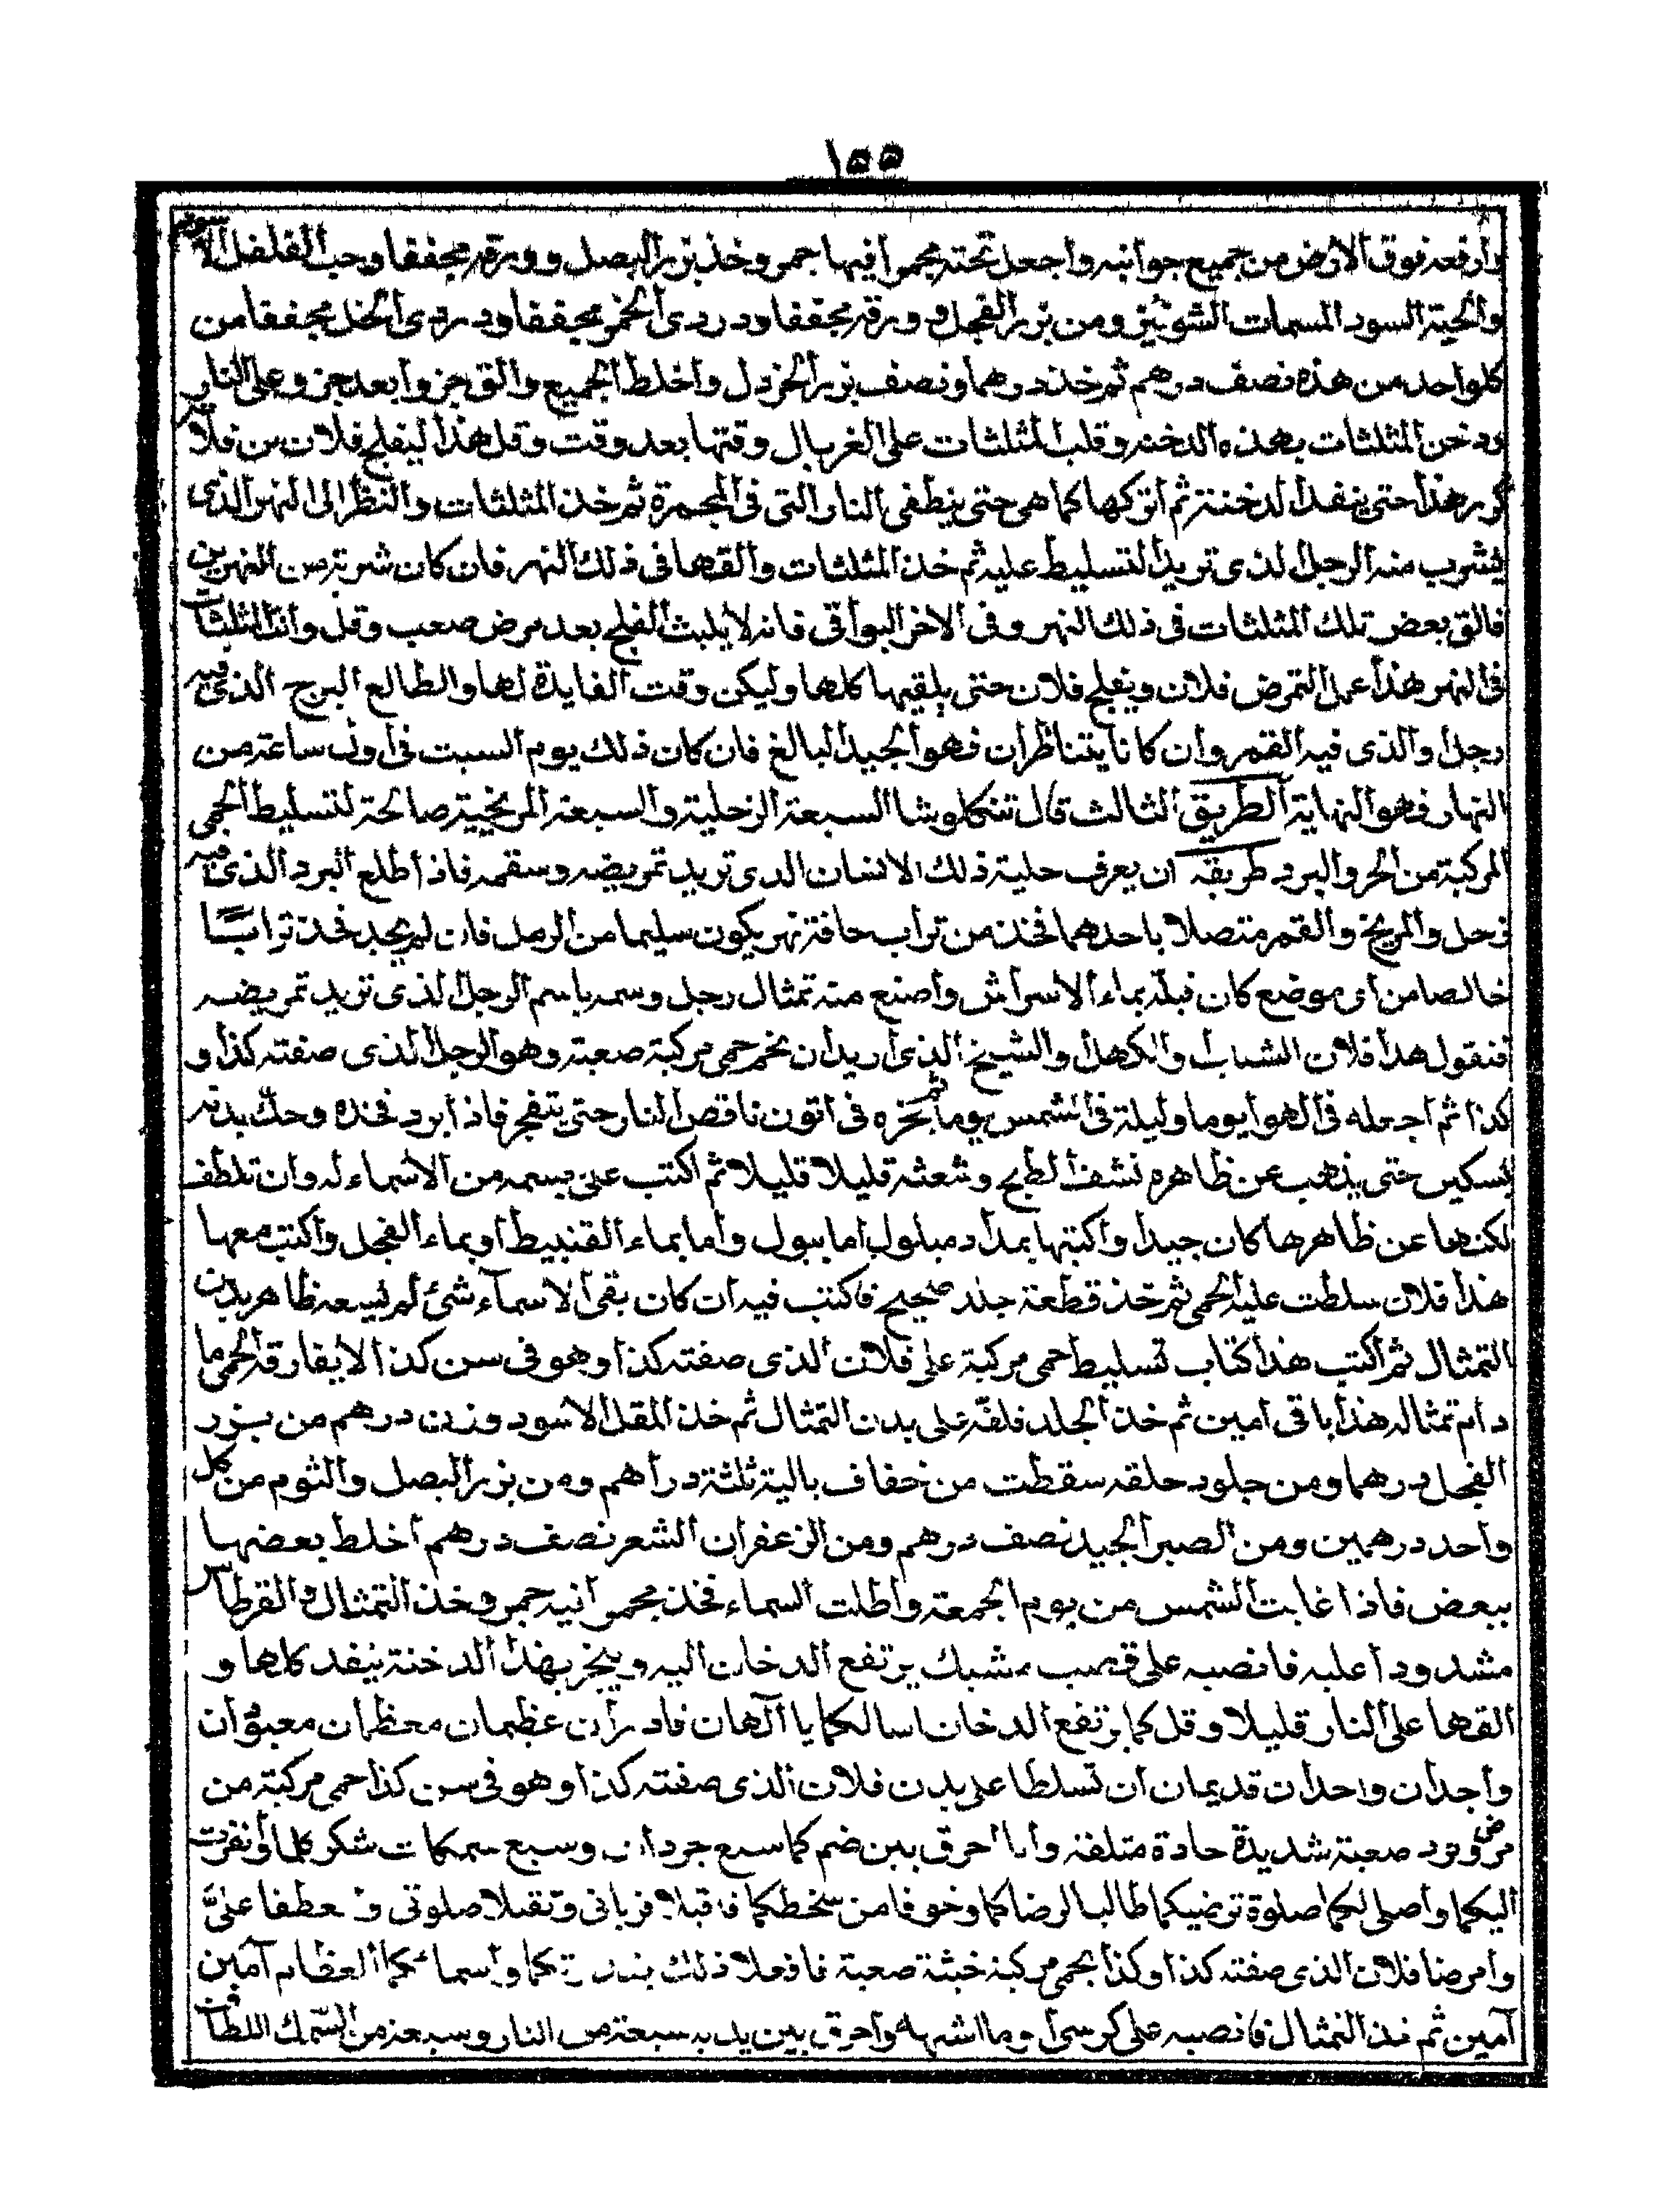 ١٥٥
وارفعه فوق الارض من جميع جوانبه واجعل تحته مجمرا فيها جمر وخذ بزر البصل وورقه مجففا وحب الفلفل
والحبة السود المسمات الشونيز ومن بزر الفجل وورقه مجففا ودردى الخمر مجففا ودردى الخل مجففا من
كلواحد من هذه نصف درهم ثم خذ درهما ونصف بزر الخردل واخلط الجميع والق جزوا بعد جزو على النار
ودخن المثلثات بهذه الدخنه وقلب المثلثات على الغربال وقتها بعد وقت وقل هذا ليفلج فلان بن فلان
كرر هذا حتى ينفد الدخننة ثم اتركها كما هى حتى ينطفى النار التى فى المجمرة ثم خذ المثلثات والنظر الى النهر الذى
يشرب منه الرجل الذى تريد التسليط عليه ثم خذ المثلثات والقها فى ذلك النهر فان كان شربه من النهرين
فالق بعض تلك المثلثات فى ذلك النهر وفى الاخر البواقى فانه لا يلبث الفلج بعد مرض صعب وقل وانت المثلثات
فى النهر هذا عمل التمرض فلان ويفلج فلان حتى يلقيها كلها وليكن وقت الفايدة لها والطالع البرج الذى فيه
زحل والذى فيه القمر وان كانا يتناظران فهو الجيد البالغ فان كان ذلك يوم السبت فى اول ساعة من
النهار فهو النهاية الطريق الثالث قال تنكلوشا السبعة الزحلية والسبعة المريخيية صالحة لتسليط الحمى
المركبة من الحر والبرد طريقه ان يعرف حلية ذلك الانسان الدى تريد تمريضه وسقمه فاذ اطلع البرد الذى فيه
زحل والمريخ والقمر متصلا باحدهما فخذ من تراب حافة نهر يكون سليما من الرمل فان لم يجد فخذ ترابا
خالصا من اى موضع كان فبله بماء الاسراش واصنع منه تمثال رجل وسمه باسم الرجل الذى تريد تمريضه
فنقول هدا فلان الشباب والكهل والشيخ الذى اريد ان يخم حمى مركبة صعبة وهو الرجل الذى صفته كذا و
كذا ثم اجعله فى الهوا يوما وليلة فى الشمس يوما ثم بخره فى اتون ناقص النار حتى يتفجر فاذ ابرد فخذه وحك بدنه
بسكين حتى يذهب عن ظاهره نشف الطبخ وشعثه قليلا قليلا ثم اكتب على بسمه من الاسماء له وان تلطف
لكنها عن ظاهرها كان جيدا واكتبها بمداد مبلول اما ببول واما بماء القنبيط او بماء الفجل واكتب معها
هذا فلان سلطت عليه الحمى ثم خذ قطعة جلد صحيح فاكتب فيه ان كان بقى الاسمآء شئ لم يسعه ظاهر بدن
التمثال ثم اكتب هذا كتاب تسليط حمى مركبة على فلان الذى صفته كذا وهو فى سن كذا لا يفارقه الحمى ما
دام تمثاله هذا باقى امين ثم خذ الجلد فلفه على بدن التمثال ثم خذ المقل الاسود وزن درهم من بزر
الفجل درهما ومن جلود حلقه سقطت من خفاف بالية ثلثة دراهم ومن بزر البصل والثوم من كل
واحد درهمين ومن الصبر الجيد نصف درهم ومن الزعفران الشعر نصف درهم اخلط بعضها
ببعض فاذا غابت الشمس من يوم الجمعة واظلت السماء فخذ مجمرا نيه جمر وخذ التمثال والقرطاس
مشدودا عليه فانصبه على قصب مشبك يرتفع الدخان اليه ويبخر بهذا الدخنة ينفد كلها و
القها على النار قليلا وقل كما يرتفع الدخان اسالكما يا آلهان قادران عظيمان معظمان معبودان
واجدان واحدان قديمان ان تسلطا على بدن فلان الذى صفته كذا وهو فى سن كذا حمى مركبة من
صعبة شديدة حادة متلفة وانا احرق بين كما سبع جردان وسبع سمكات شكر كلما ونفرت
اليكما واصلى لكما صلوة ترضيكما طالبا لرضاكما وخوفا من سخطكما فاقبلا قربانى وتقبلا صلوتى وتعطفا علىّ
وامرضا فلان الذى صفته كذا وكذا بحمى مركبة خبثة صعبة فافعلا ذلك واسمائكما العظام آمين
آمين ثم خذ التمثال فانصبه على كرسى وما اشبهه واحرق بين يديه سبعة من النار وسبعة من السّمك